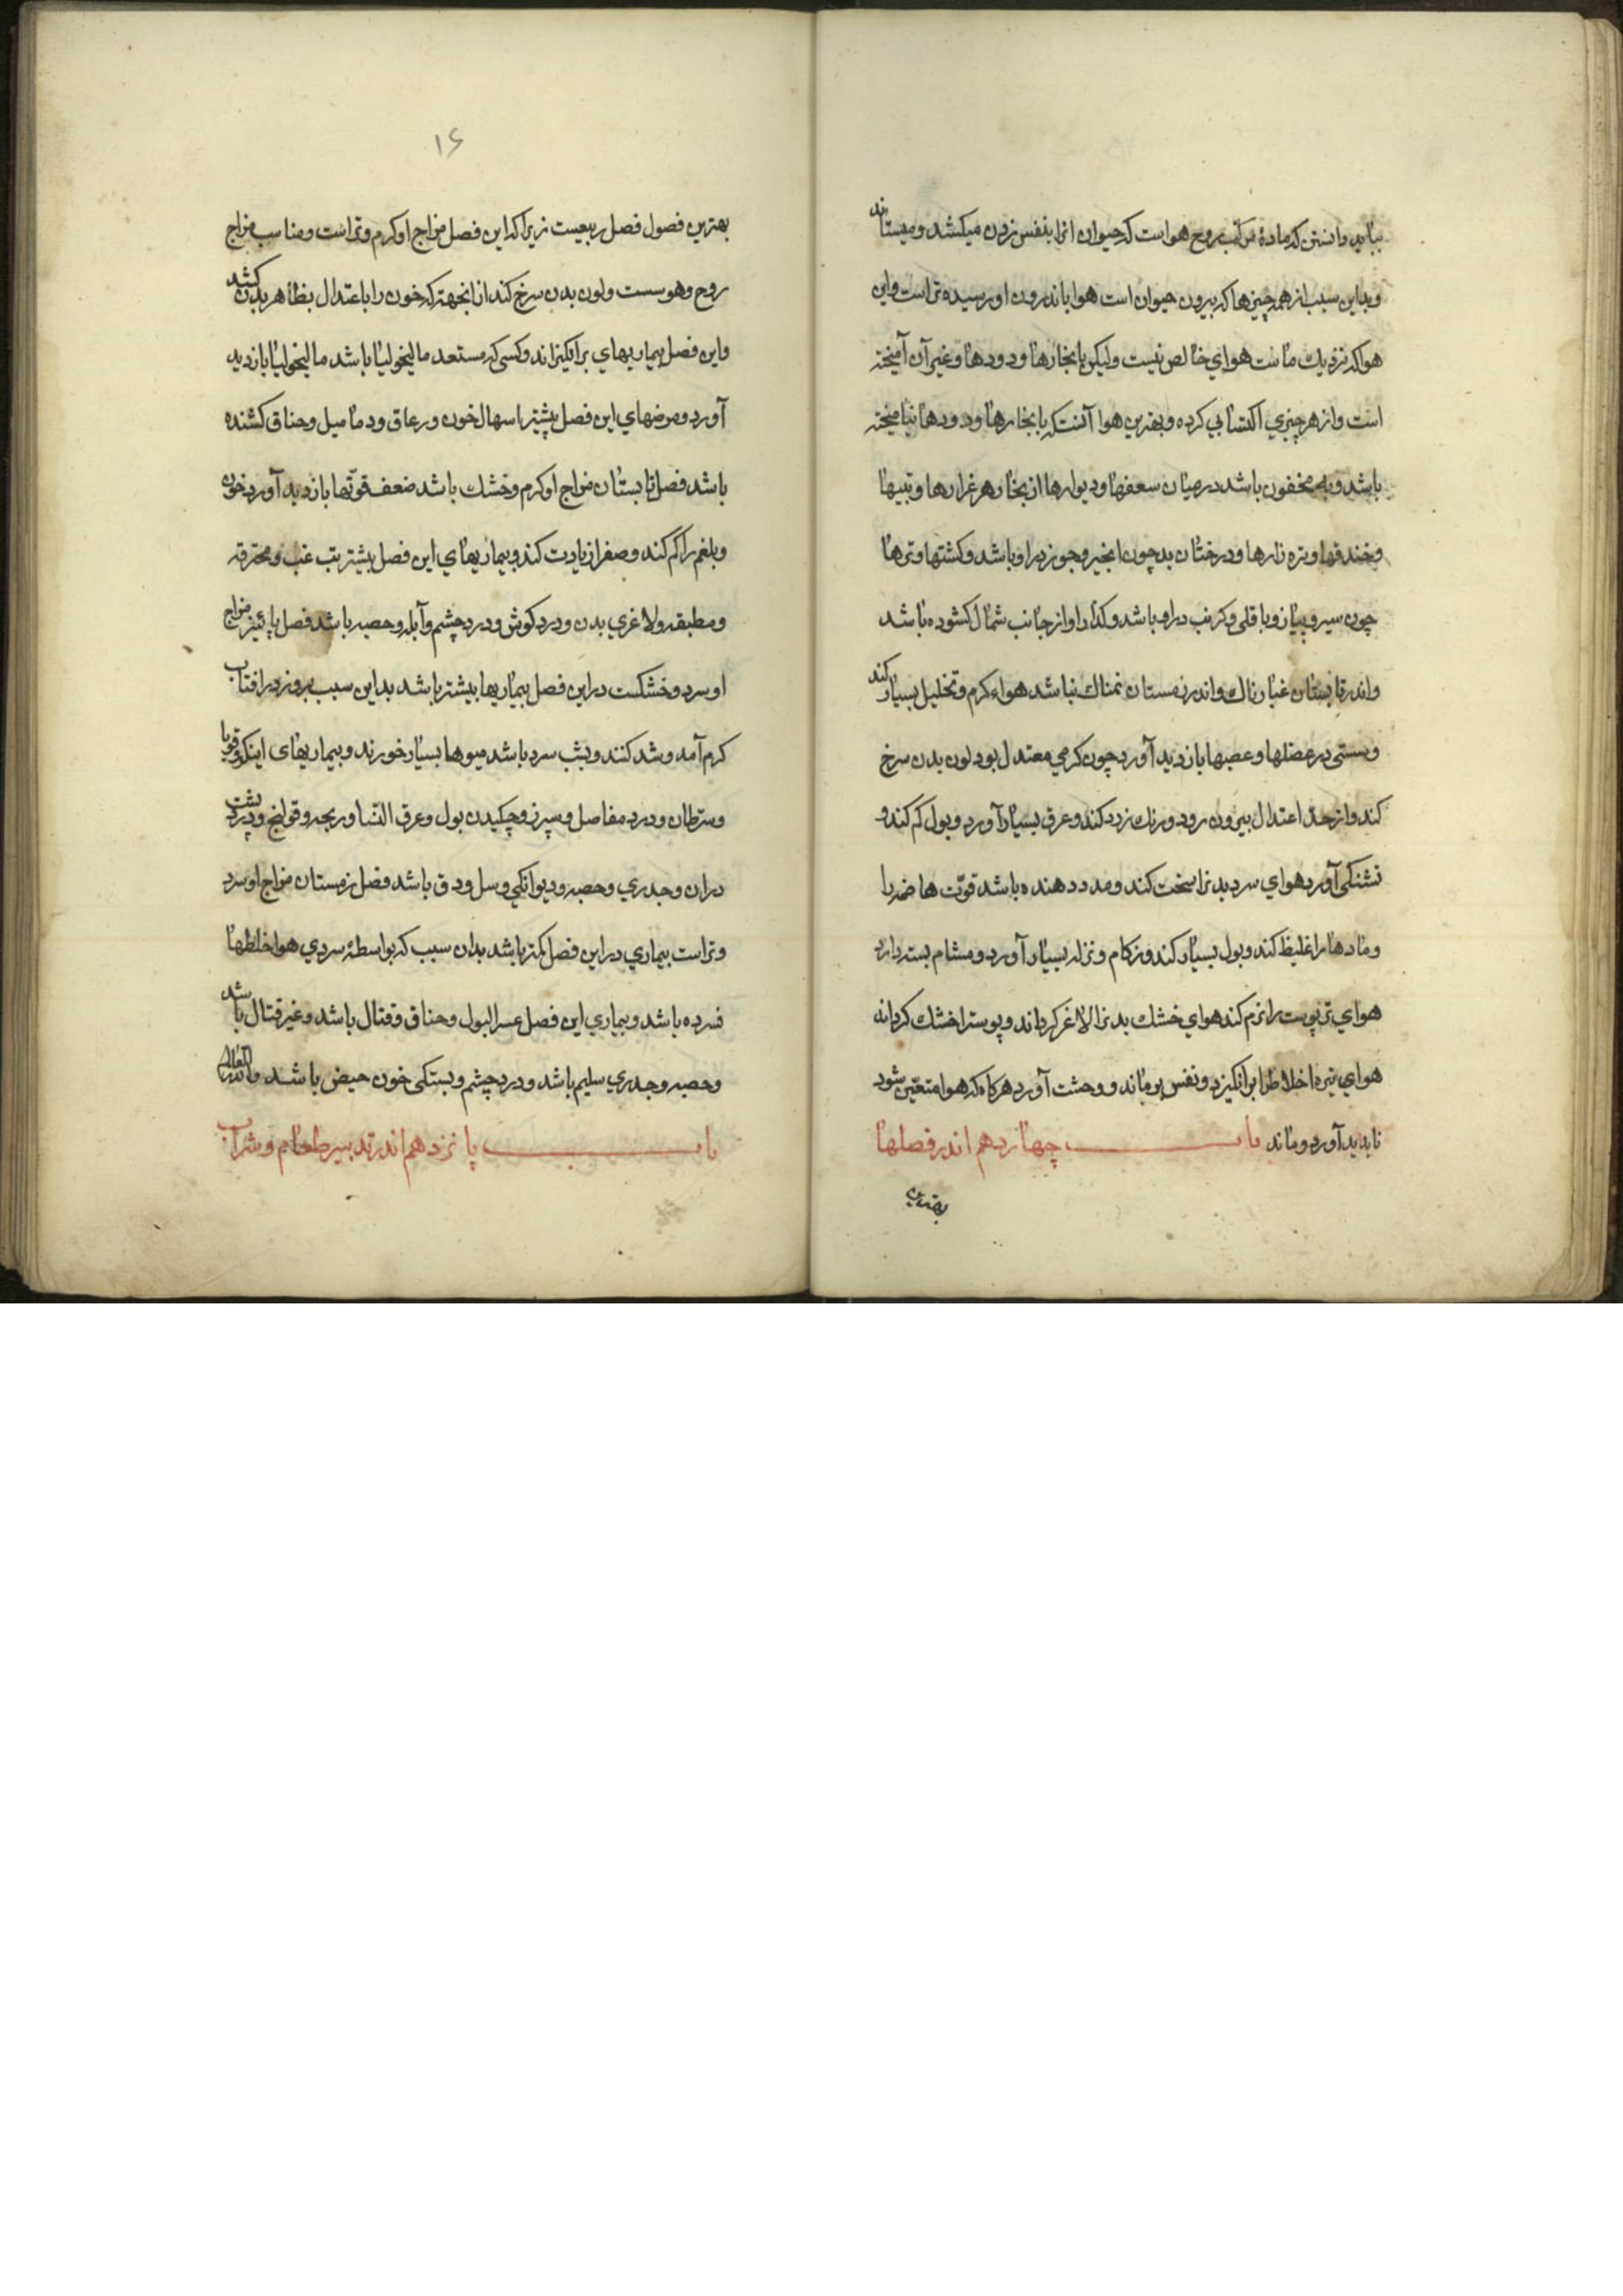 ببايد دانستن كه مادۀ مركب روح هواست كه حيوان انرا بنفس زدن ميكشد و ميستاند
و بداين سبب از همه چيزها كه بيرون حيوان است هوا باندرون او رسيده تر است و اين
هوا كه نزديك ماست هواي خالص نيست وليكن با بخارها و دودها و غير آن آميخته
است و از هر چيزي اكتسابي كرده و بهترين هوا آنست كه با بخارها و دودها نياميخته
باشد و مخفون باشد درميان سعفها و ديوارها از بخار هر غرارها و
و خندقها و تره زارها و درختان بد چون انجير و جوز دراو باشد و كشتها و ترها
چون سير و پياز و باقلي و كرنب دراو باشد و كذار او از جانب شمال كشوده باشد
و اندر تابستان غبارناك و اندر زمستان نمناك نباشد هواء كرم و تحليل بسيار كند
و سستي در عضلها و عصبها بازديد آورد چون كرمي معتدل بود لون بدن سرخ
كند و از حد اعتدال بيرون رود و رنك زرد كند و عرق بسيار آورد و بول كم كند و
تشنكي آورد هواي سرد بدنرا سخت كند و مدد دهنده باشد قوّت هاضمه را
و مادها را غليظ كند و بول بسيار كند و زكام و نزله بسيار آورد و مشام بسته دارد
هواي تر پوست را نرم كند هواي خشك بدنرا لاغر كرداند و پوسترا خشك كرداند
هواي تيره اخلاط را برانكيزد و نفس بوماند و وحشت آورد هركاه كه هوا متعيّن شود
ناپديد آورد و ماند باب چهاردهم اندر فصلها
بهترين
۱۶
بهترين فصول فصل ربيعيست زيرا كه اين فصل مزاج او كرم و تر است و مناسب مزاج
روح و هوسست و لون بدن سرخ كند از انجهته كه خون را باعتدال بظاهر بدن كشد
و اين فصل بيماريهاي برانكيزاند و كسي كه مستعد ماليخوليا باشد ماليخوليا بازديد
آورد و مرضهاي اين فصل بيشتر اسهال خون و رعاق و دماميل و حناق كشنده
باشد فصل تابستان مزاج او كرم و خشك باشد ضعف قوّتها بازديد آورد خون
و بلغم را كم كند و صفرا زيادت كند و بيماريهاي اين فصل بيشتر تب غب و محترقه
و مطبقه و لاغري بدن و درد كوش و درد چشم و آبله و حصبه باشد فصل پائيز مزاج
او سرد و خشكست دراين فصل بيماريها بيشتر باشد بداين سبب بروز درافتاب
كرم آمد و شد كنند و بشب سرد باشد ميوها بسيار خورند و بيماريهاى اينكه قوبا
و سرطان و درد مفاصل و سپرز و چكيدن بول و عرق النسا و ربحه و قولنج و درد پشت
دران و جدري و حصبه و ديوانكي و سل و دق باشد فصل زمستان مزاج او سرد
و تر است بيماري دراين فصل كمتر باشد بدان سبب كه بواسطۀ سردي هوا خلطها
فسرده باشد و بيماري اين فصل عسر البول و حناق و قتال باشد و غير قتال باشد
و حصبه و جدري سليم باشد و درد چشم و بستكى خون حيض باشد والله اعلم
باب پانزدهم اندر تدبير طعام و شراب